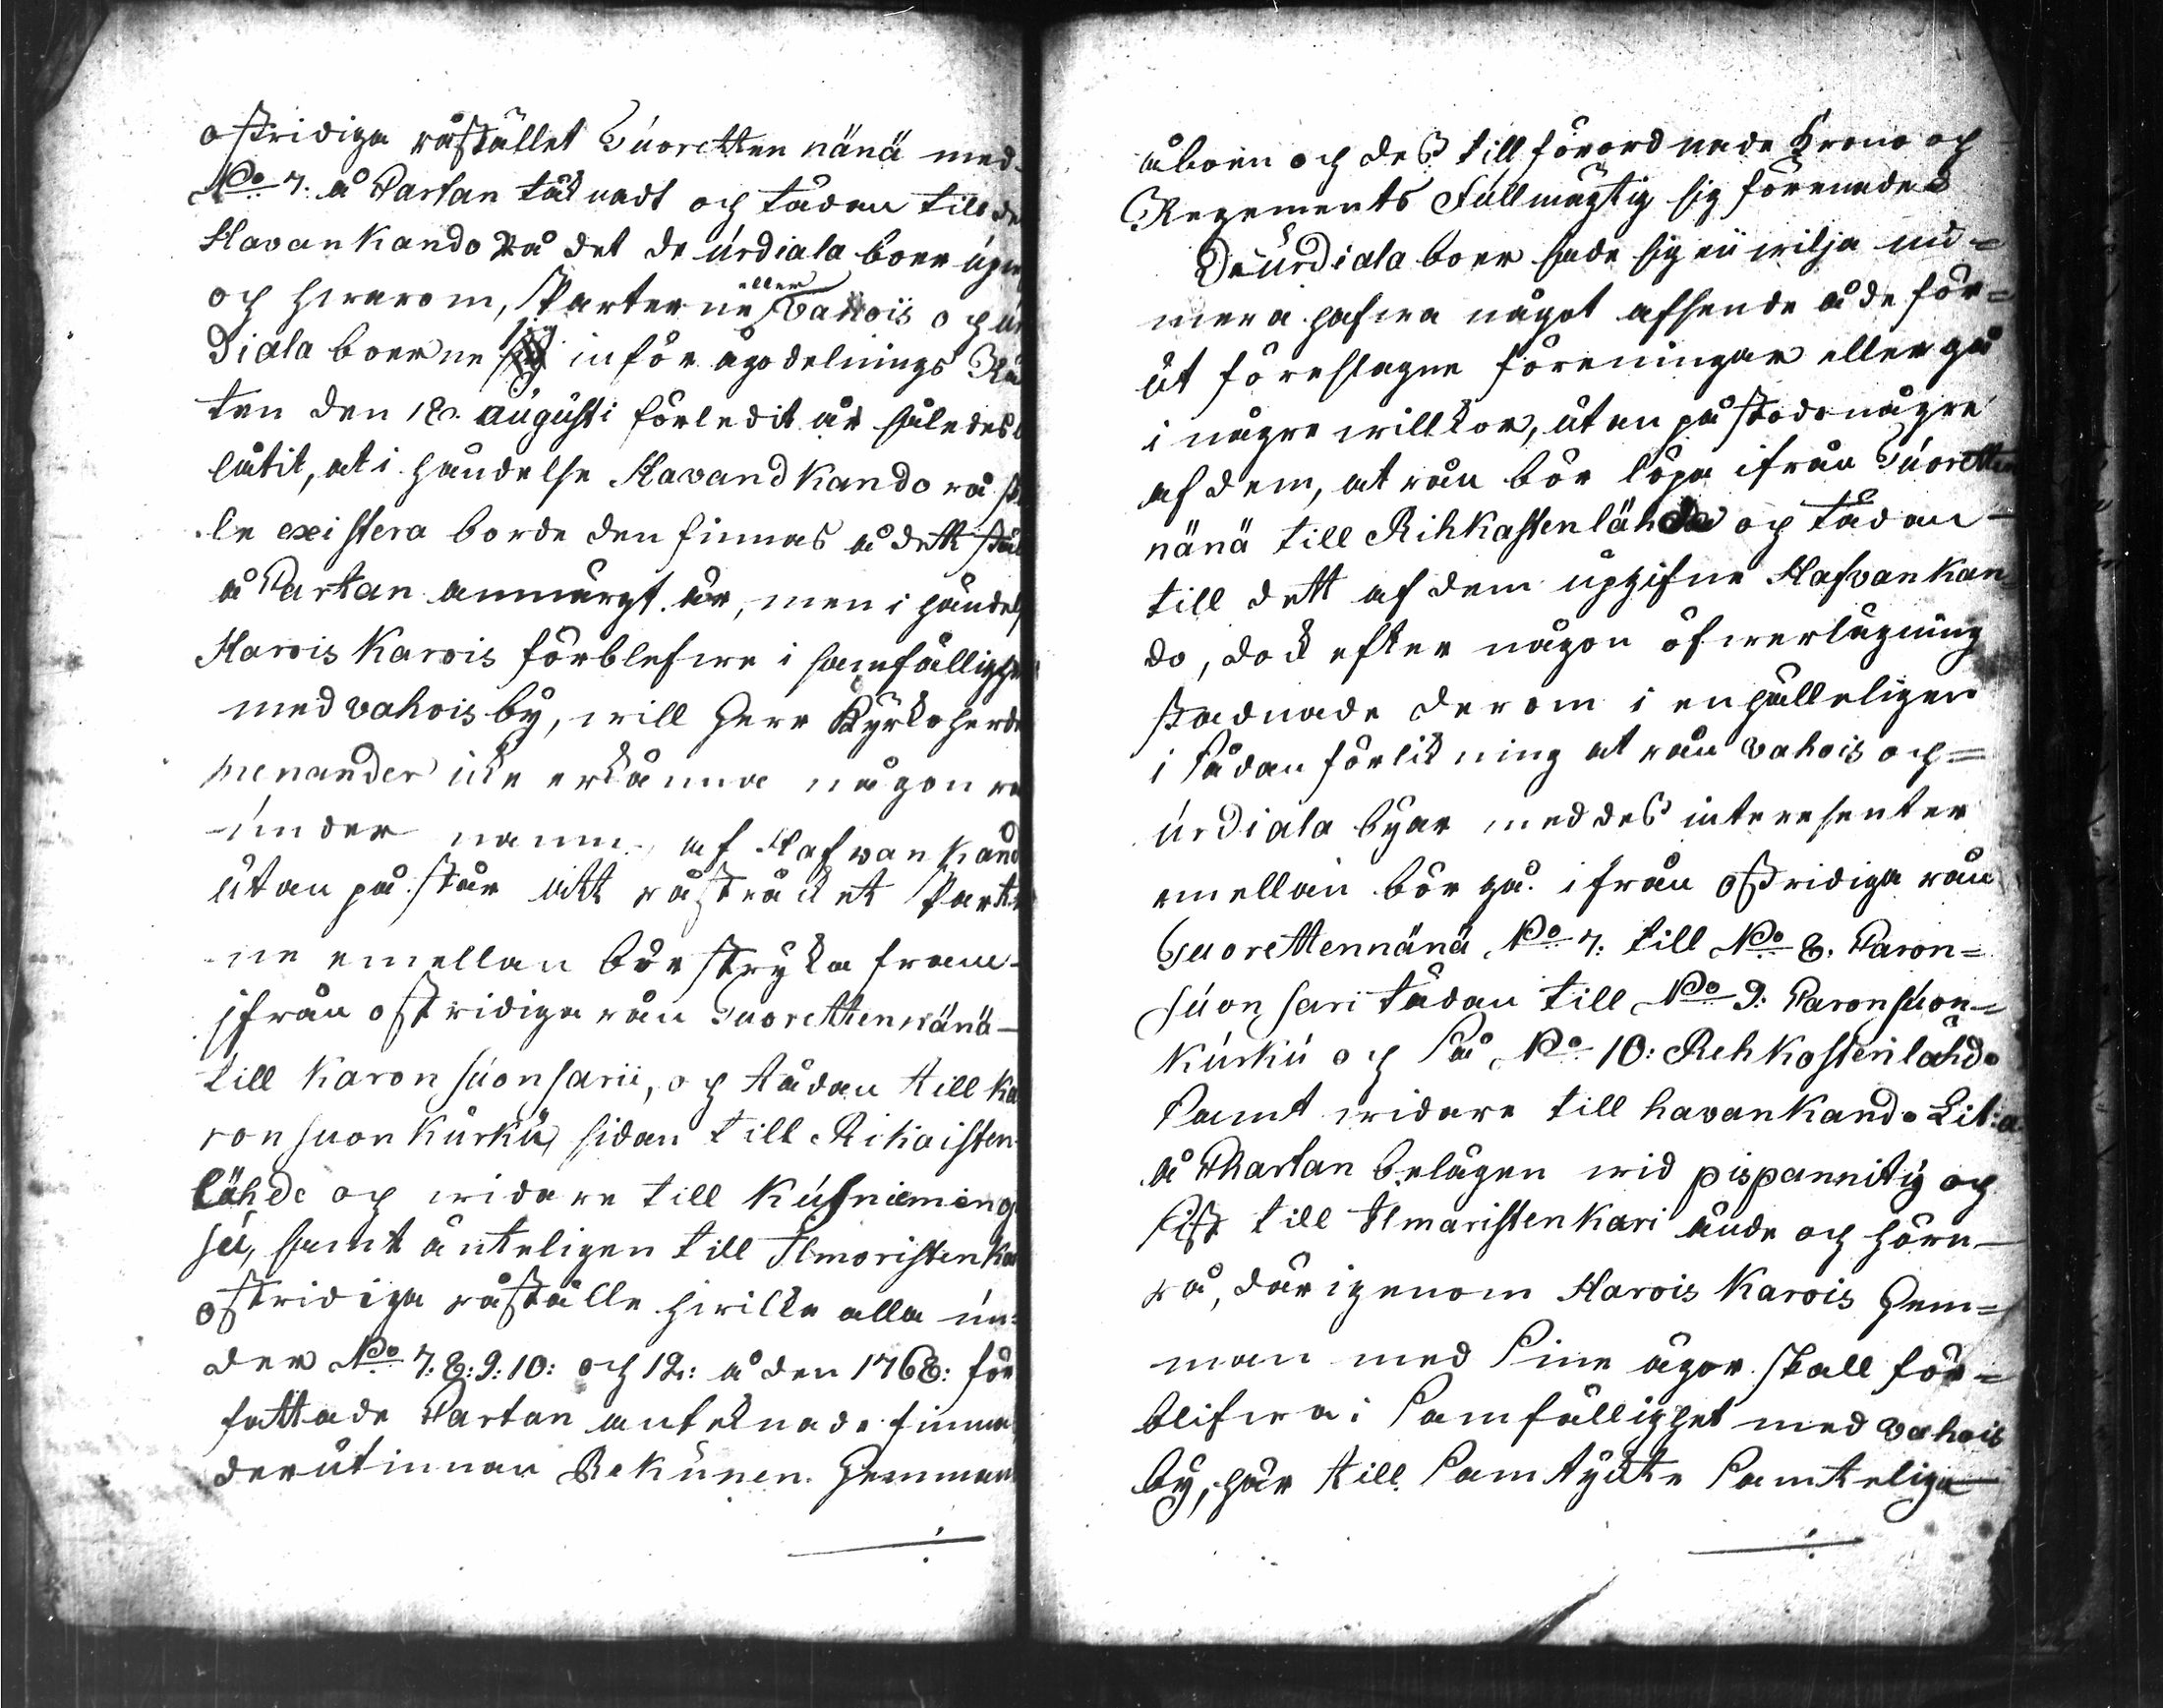 ostridiga råstället Suoretten nänä med
No 7. å Cartan täknadt och tädan till de
Havankando Rå det de urdiala boer upgi
och hwarom, Parterne eller Vahois och ur
Diala boerne inför ägodelnings Rä
ten den 18. augusti förledit år således
låtit, at i händelse Havandkando rå sk
le existera borde den finnas å dett stäl
å Cartan anmärgt är, men i händels
Harois Karois förblefwe i samfällighe
med vahois by, will Herr Kyrkoherde
menander icke erkänna någon rå
under namn af Hafwankand
utan påstår att råsträcket Parter
ne emellan bör stryka fram
ifrån ostridiga rån Suorettennänä
till Karon suonsarii, och tädan till Ka
ronsuon kurku, sidan till Rihaisten
lähde och widare till Kusniemenoj
su, samt änteligen till Ilmoristenka
ostridiga råställe hwilka alla un=
der No 7: 8: 9: 10: och 12: å den 1768: för
fattade Cartan anteknade finnas
derutinnan Bekünen. Hemman
åboen och des tillförordnade Krono och
Regements Fullmägtig sig förenade
De urdiala boer sade sig eij wilja nu=
mera hafwa något afseende å de för=
ut föreslagne föreningar eller gå
i några willkor, utan påstodo någre
af dem, at rån bör löpa ifrån Suoretten
nänä till Rihkastenlähde och tädan
till dett af dem upgifne Hafvankan
do, dock efter någon öfwerläggning
stadnade derom i enhälleligen
i sådan förlikning at rån vahois och=
urdiala byar med des interesenter
emellan bör gå ifrån ostridiga rån
Suorettennänä No 7: till No 8. Caron=
suon sari tädan till No 9: Caronsuon=
kurku och så No 10: Rehkostenlähde
samt widare till havankando Lit: a
å Chartan belägen wid pispannity och
sist till Ilmaristenkari ände och hörn
rå, därigenom Harois Karois Hem=
man med sine ägor skall för=
blifwa i samfällighet med vahois
by, här till samtyckte samtelige